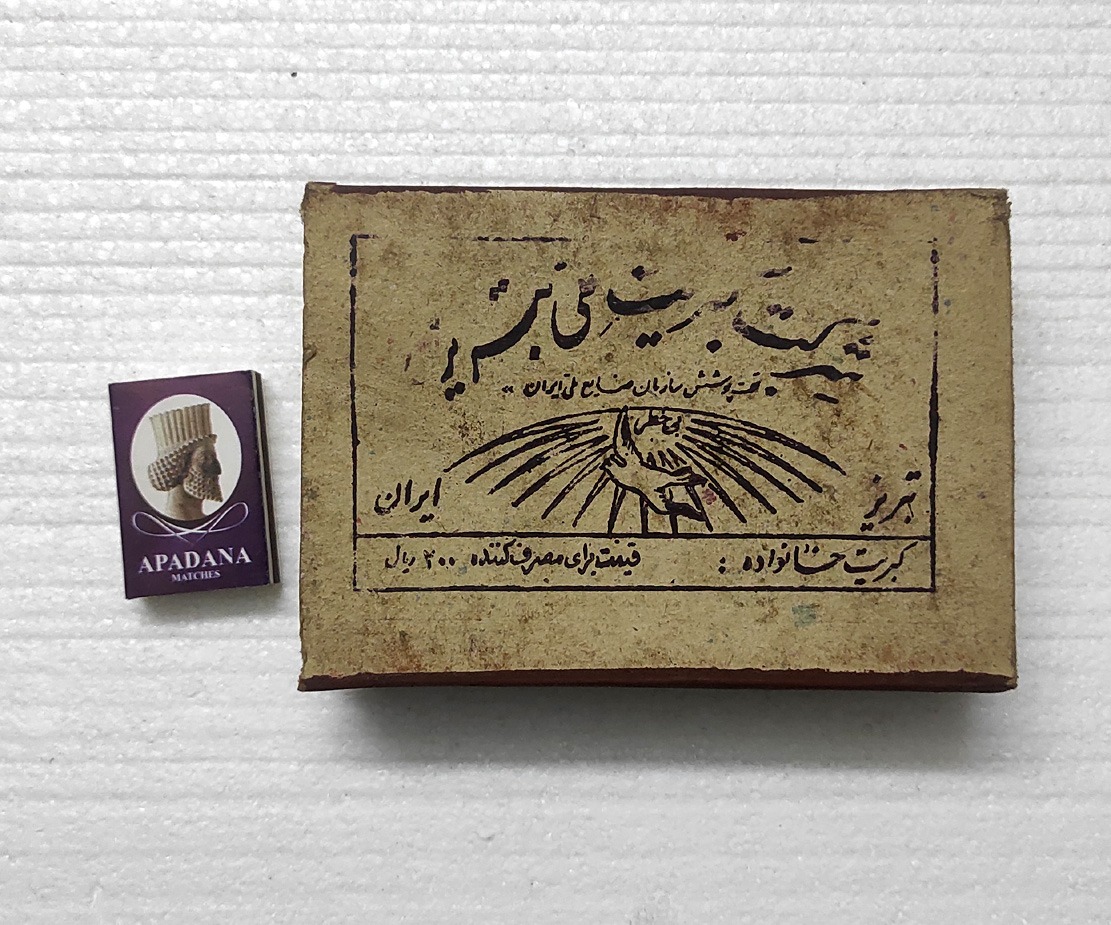 APADANA
MATCHES
کبریت ملی تبریز
تحت پوشش سازمان صنایع ملی ایران
بی خطر
تبریز
ایران
کبریت خانواده :
قیمت برای مصرف کننده ۲۰۰ ریال